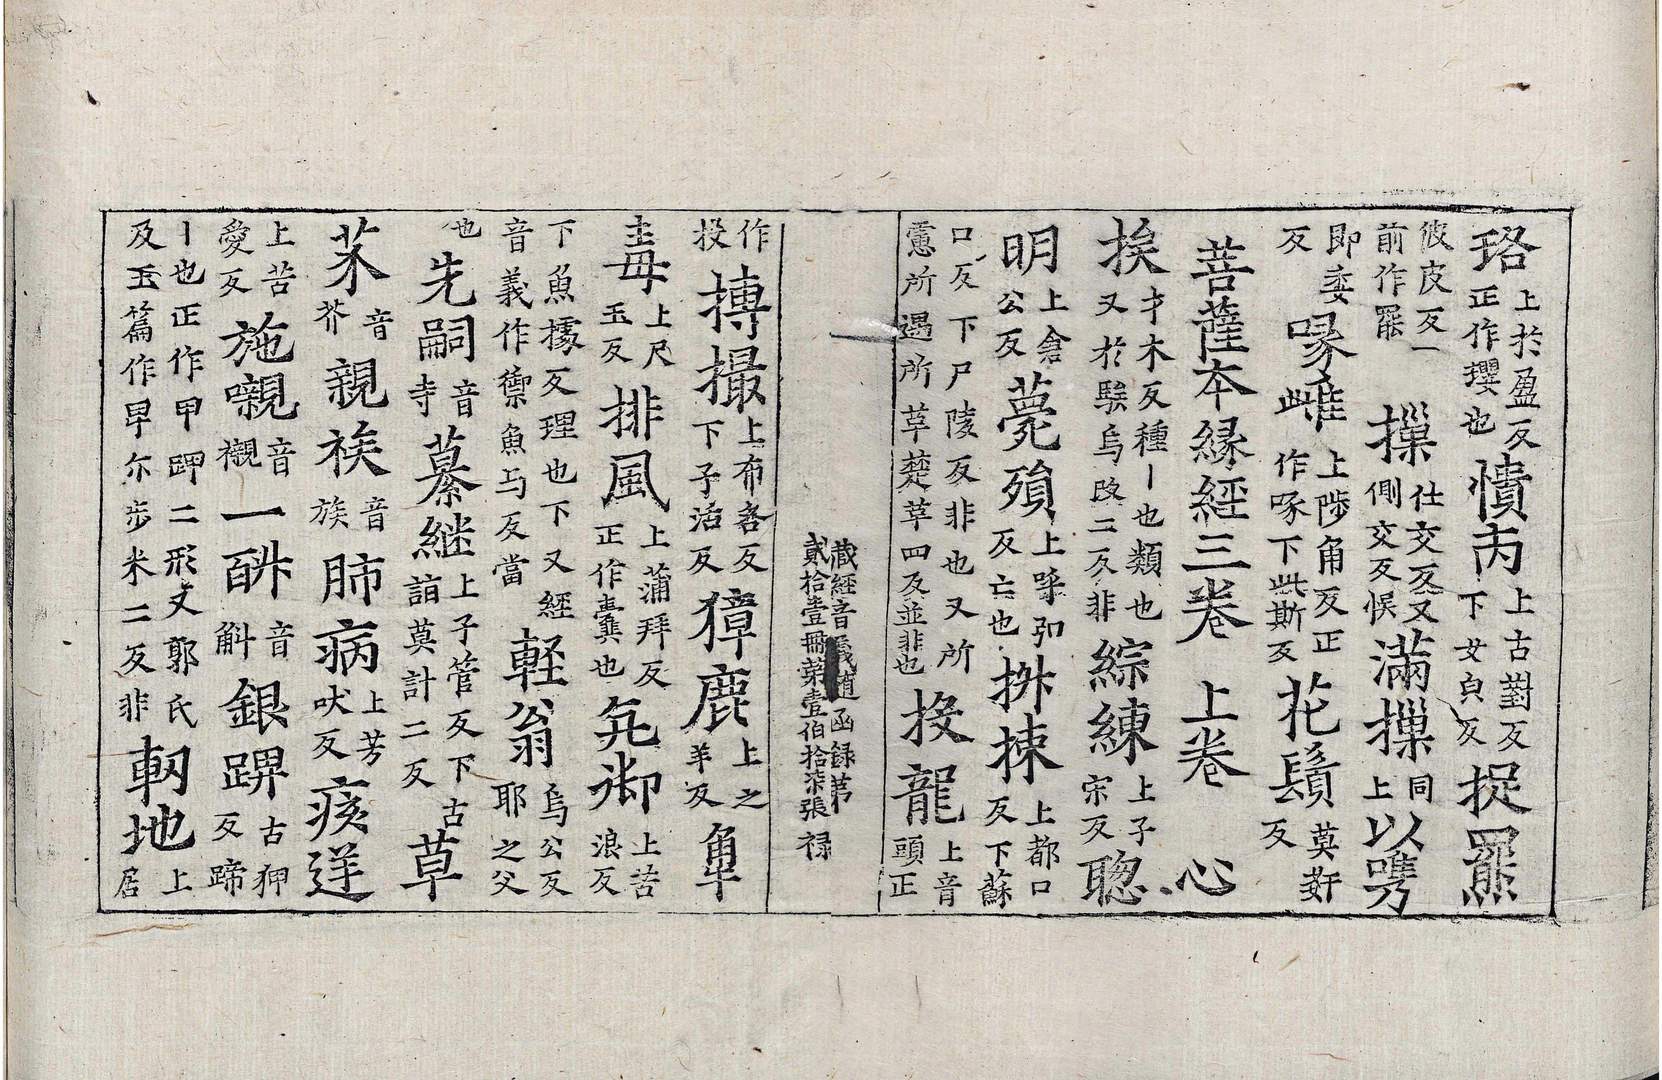 珞上於盈反正作瓔也憒丙上古對反下女皃反捉羆
彼皮反一前作羆摷仕交反又側交反悞滿摷同上以嘴
即委反喙雌上陟角反正作啄下此斯反花鬚莫奸反
菩薩本縁經三卷 上卷 心
挨才木反種丨也類也又於騃烏改二反非綜練上子宋反聦
明上倉公反薨殞上呼弘反亡也拼捒上都口反下蘇
口反下尸陵反非也又所慮所遇所草楚草四反並非也投龍上音頭正
藏經音義随函録第貳拾壹冊第壹伯拾柒張 禄
作投搏撮上布各反下子活反獐鹿上之羊反角
毒上尺玉反排風上蒲拜反正作橐也氖御上苦浪反
下魚據反理也下又經音義作禦魚与反當軽翁烏公反耶之父
也先嗣音寺纂継上子管反下古詣莫計二反草
芥音芥親族音族肺病上芳吠反痎逆
上苦愛反施嚫音襯一酙音斛銀踋古狎反蹄
丨也正作甲䠙二形又郭氏及玉篇作甼尒步米二反非軔地上居